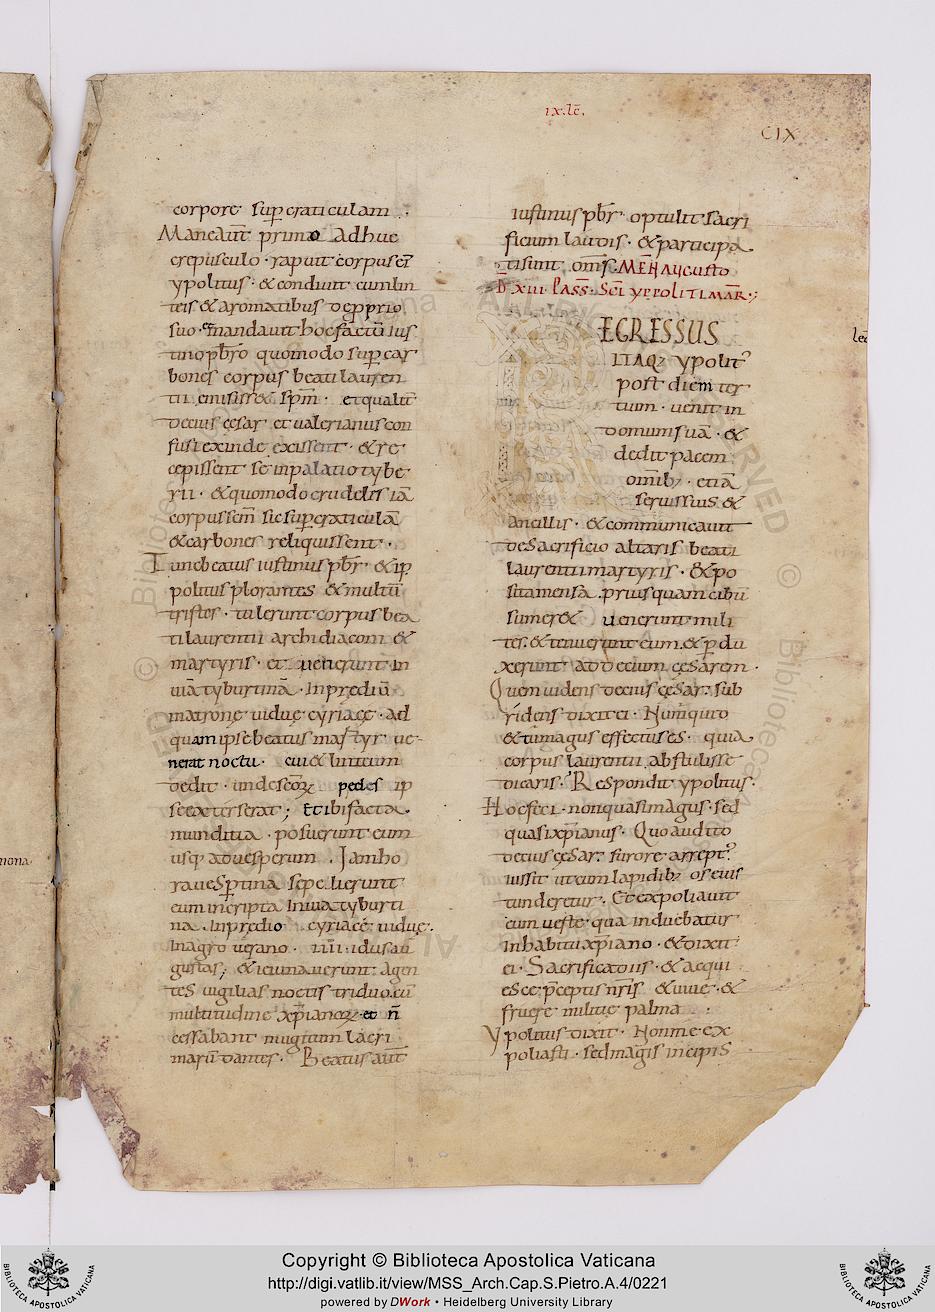 ıx. lc̄.
CIX
corpore sup craticulam .
Maneaūt primo adhuc
crepusculo · rapuit corpus eı̄
ypolitus · & condiuit cum lin
teis & aromatibus
suo · mandauit hoc factū ius
tino pƀro quomodo sup car
bones corpus beati lauren
tii emisiss& sp̄m · et qualit̄
decius cesar et ualerianus con
fusi exinde exissent · & re
cepissent se in palatio tybe
rii · & quomodo crudelit iā
corpus sem̄ sic sup craticulā
& carbones reliquissent ·
Tunc beatus iustinus pƀr · & ip
politus plorantes & multū
tristes · tulerunt corpus bea
ti laurentii archidiaconi &
martyris · et uenerunt in
uiā tyburtinā · In prediū
matronę uiduę cyriacę · ad
quam ipse beatus martyr ue-
nerat noctu · cui & linteum
dedit · unde scōꝝ pedes ip
se exterserat ; Et ibi facta
munditia · posuerunt eum
usq; ad uesperum . Iam ho
ra uespertina sepelierunt
eum in cripta In uia tyburti
na . In predio cyriacę uiduę ·
In agro uerano · iiii · idus au
gustas ; & ieiunauerunt agen
tes uigilias noctis triduo cū
multitudine xp̄ianoꝝ · et n̄
cessabant mugitum lacri
marū dantes · Beatus aūt
iustinus pƀr · optulit sacri
ficium laudis · & participa
ti sunt om̄s · MEN̄ Augusto
D̄ . xııı · PASS̄ · SC̄I YPPOLITI MAR̄ · ;
REGRESSUS
ITAQ; ypolit᾿
post diem ter
tium · uenit in
domum suā · &
dedit pacem
om̄ibꝫ · etiā
seruis suis &
ancillis · & communicauit
de sacrificio altaris beati
laurentii martyris · & po
sita mensa . priusquam cibū
sumer& uenerunt mili
tes · & tenuerunt eum · & p du
xerunt ad decium cęsarem ·
Quem uidens decius cęsar : sub
ridens dixit ei · Numquid
& tu magus effectus es · quia
corpus laurentii abstulisse
dicaris · Respondit ypolitus ·
Hoc feci · non quasi magus · sed
quasi xp̄ianus · Quo audito
decius cęsar : furore arrept᾿
iussit ut cum lapidibꝫ os eius
tunderetur . Et expoliauit
eum ueste · qua induebatur
in habitu xp̄iano · & dixit
ei · Sacrifica diis · & acqui
esce p̄ceptis nr̄is & uiue · &
fruere militię palma
Ypolitus dixit · Non me ex
poliasti · sed magis incipis
Copyright © Biblioteca Apostolica Vaticana
http://digi.vatlib.it/view/MSS_Arch.Cap.S.Pietro.A.4/0221
powered by DWork • Heidelberg University Library